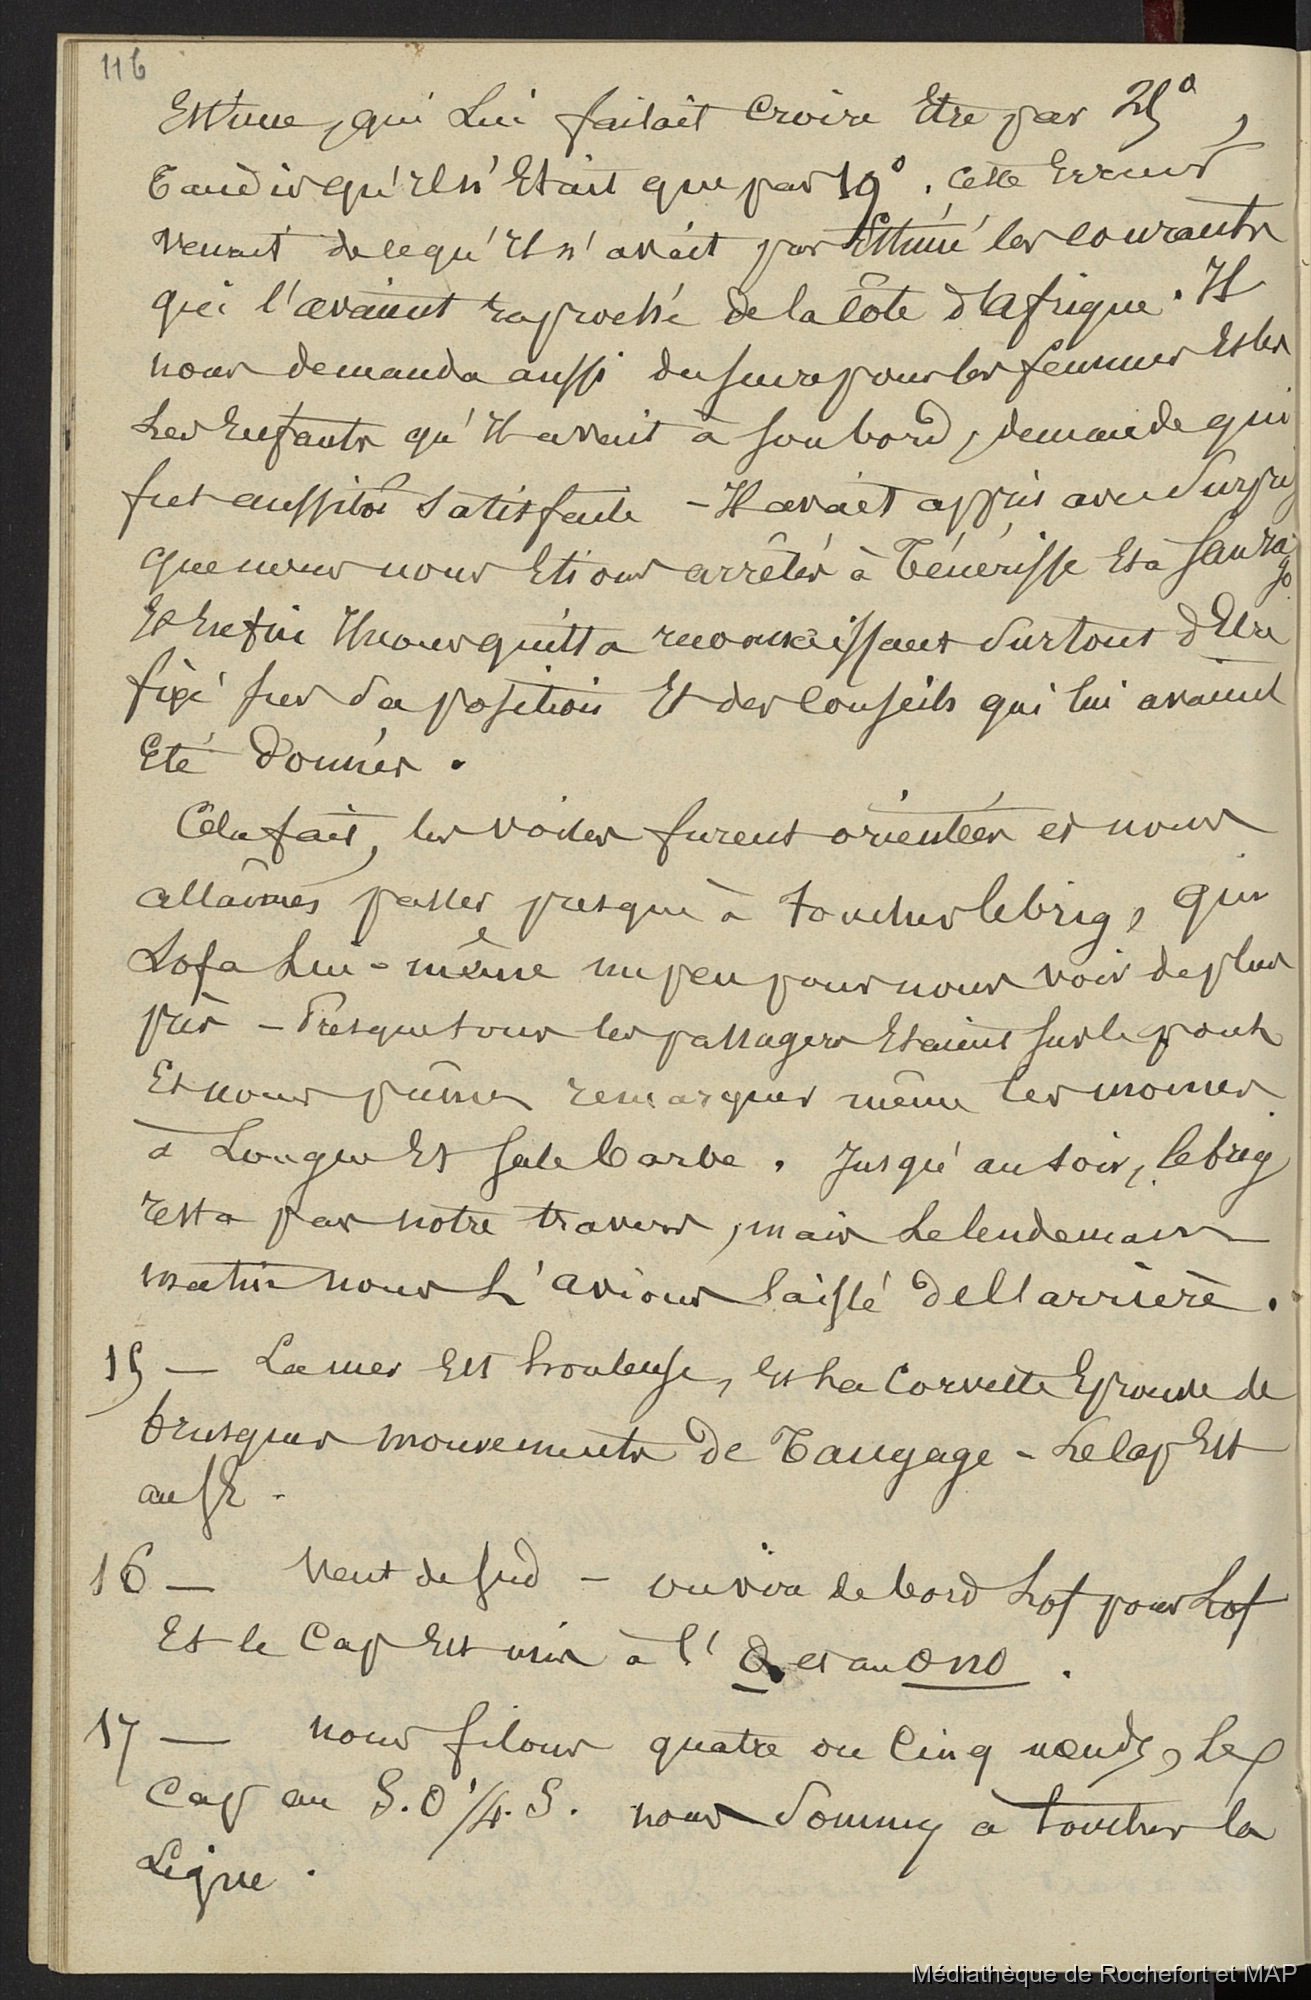 116
Estime, qui Lui faisait croire Etre par 25°,
Tandis qu'Il n'Etait que par 19°. Cette Erreur
venait de ce qu'Il n'avait pas Estimé les courants
qui l'avaient raproché de la Côte d'Afrique. Il
nous demanda aussi du sucre pour les femmes Et les
Les Enfants qu'Il avait à son bord, demande qui
fut aussitôt Satisfaite - Il avait appris avec Surprise
que nous nous Etions arrêtés à Ténériffe Et à
Et Enfin Il nous quitta reconnaissant Surtout d'Etre
fixé sur Sa position Et des Conseils qui lui avaient
Eté donnés.
Cela fait, les voiles furent orientées et nous
allâmes passer presque à toucher le brig, qui
Lofa Lui-même un peu pour nous voir de plus
près - Presque tous les passagers Etaient sur le pont
Et nous pûmes remarquer même les moines
à Longue Et sale barbe. Jusqu'au soir, le brig
resta par notre travers, mais Le lendemain
matin nous L'avions laissé de l'arrière.
15 — La mer Est houleuse, Et La Corvette Eprouve de
brusques mouvements de Tangage - Le Cap Est
au SE -
16 — Vent de Sud - on vira de bord Lof pour Lof
Et le Cap Est mis à l'O. et au ONO.
17 — nous filons quatre ou Cinq nœuds, Le
Cap au S.O 1/4. S. nous Sommes à toucher la
Ligne.
Médiathèque de Rochefort et MAP